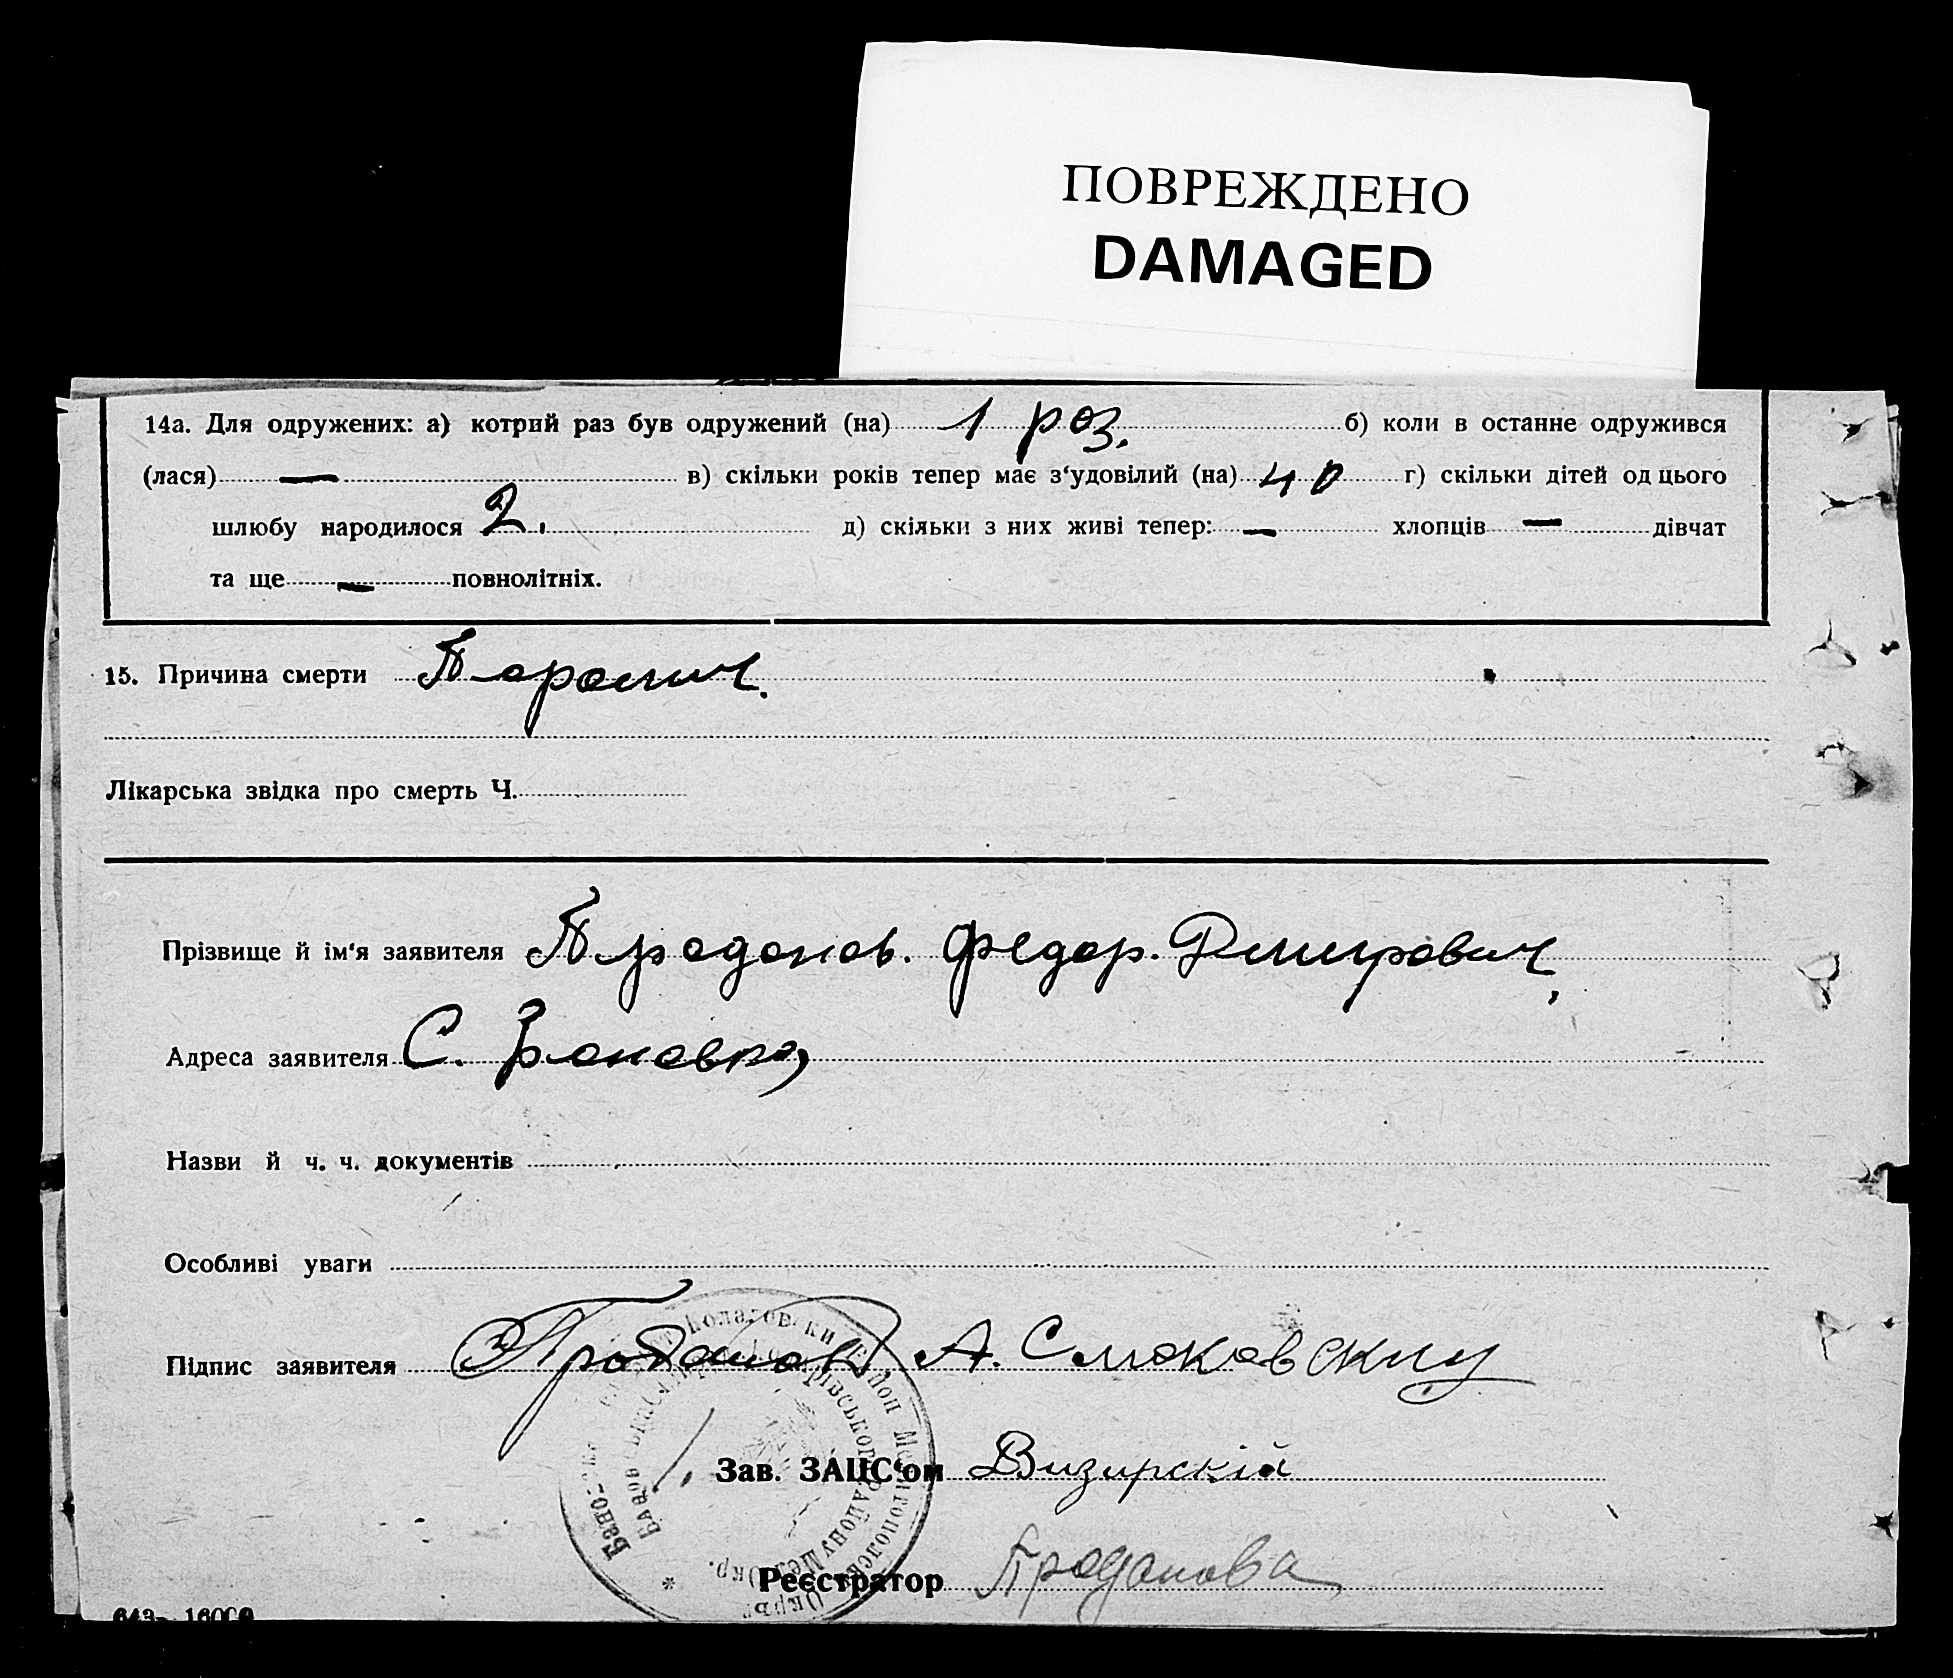 ПОВРЕЖДЕНО
DAMAGED
14а. Для одружених: а) котрий раз був одружений (на) 1 роз. б) коли в останне одружився
(лася) — в) скільки років тепер має з'удовілий (на) 40 г) скільки дітей од цього
шлюбу народилося 2. д) скільки з них живі тепер: — хлопців — дівчат
та ще — повнолітніх.
15. Причина смерти
Лікарська звідка про смерть Ч.
Прізвище й ім'я заявителя Продонов. Федор. Дмитрович,
Адреса заявителя С. Бановка,
Назви й ч. ч. документів
Особливі уваги
Підпис заявителя Проданов А.
Зав. ЗАЦС'ом Визирскій
Реєстратор Проданова
643— 16000